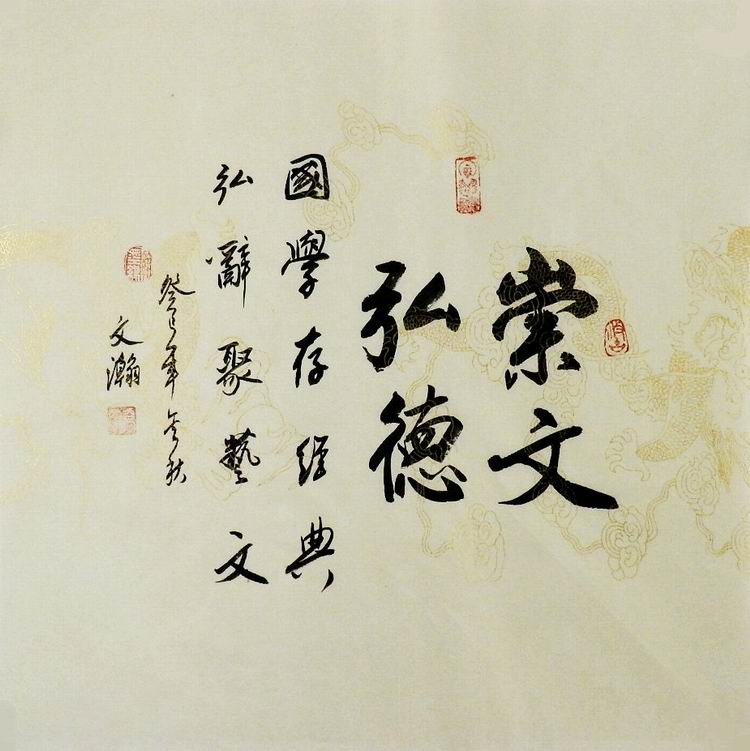 崇文
弘德
國學存經典
弘辭聚藝文
癸巳年金秋
文瀚